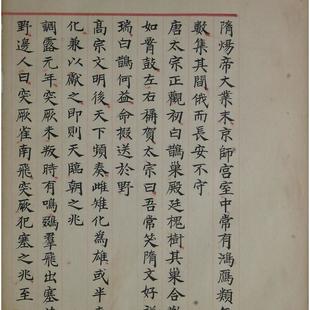 隋煬帝大業末京師宮室中常有鴻鴈類
數集其間俄而長安不守
唐太宗正觀初白鵲巢殿廷槐樹其巢合
如鼓左右稱賀太宗曰吾常笑隋文好
瑞白鵲何益命掇送於野
高宗文明後天下頻奏雌雉化為雄或半
化兼以獻之即則天臨朝之兆
調露元年突厥未叛時有鳴鵽羣飛出塞
野邊人曰突厥雀南飛突厥犯塞之兆至